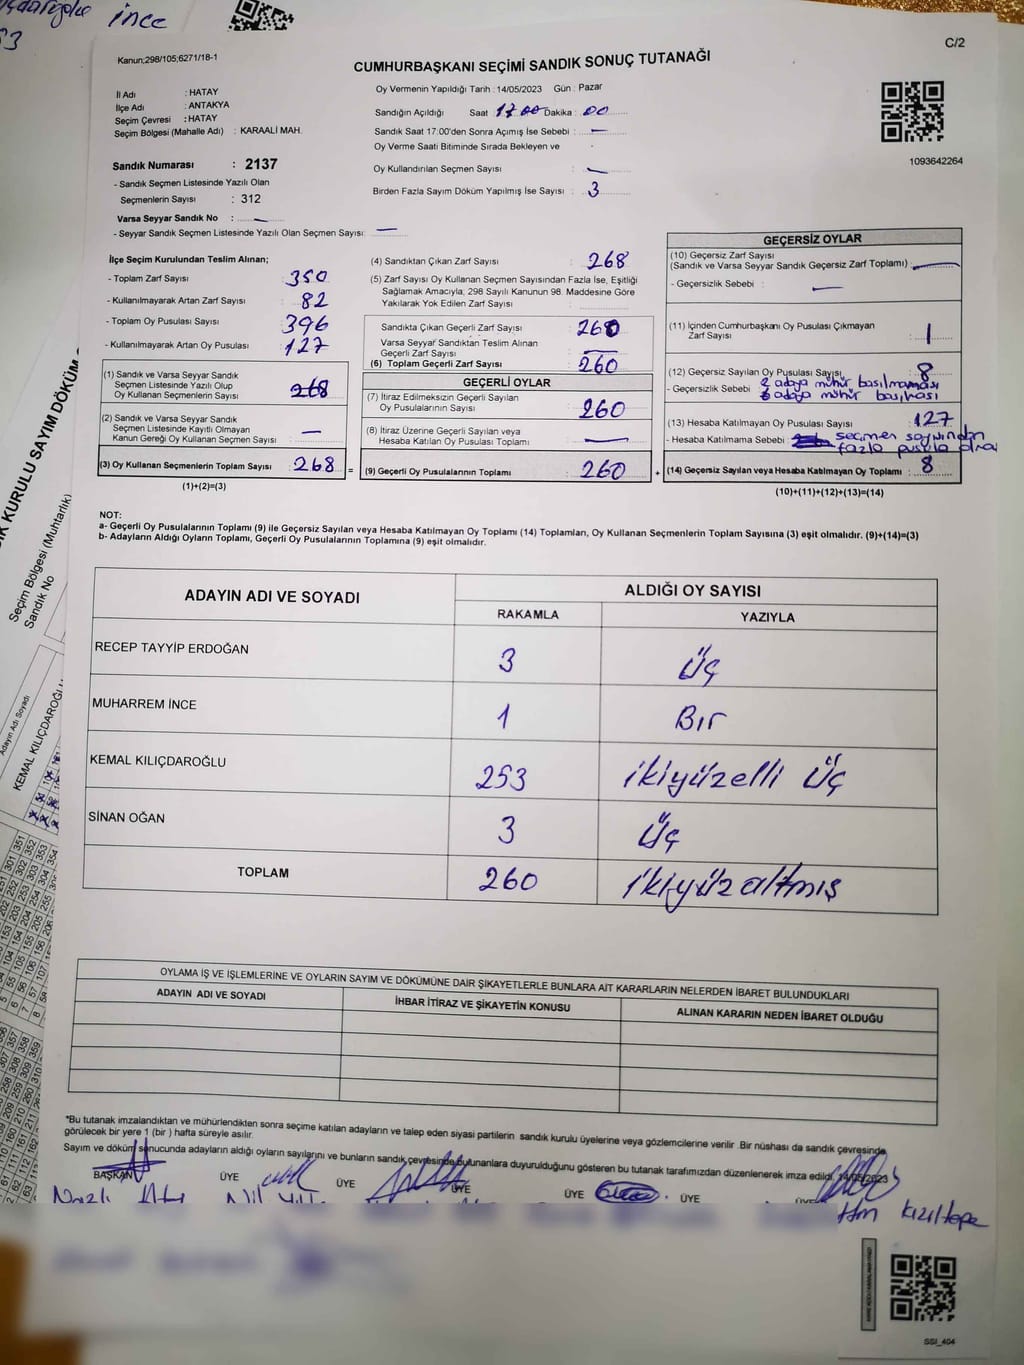 ince
C/2
Kanun;298/105;6271/18-1
CUMHURBAŞKANI SEÇİMİ SANDIK SONUÇ TUTANAĞI
İl Adı : HATAY
İlçe Adı : ANTAKYA
Seçim Çevresi : HATAY
Seçim Bölgesi (Mahalle Adı) : KARAALİ MAH.
Sandık Numarası : 2137
- Sandık Seçmen Listesinde Yazılı Olan
Seçmenlerin Sayısı : 312
Varsa Seyyar Sandık No : —
- Seyyar Sandık Seçmen Listesinde Yazılı Olan Seçmen Sayısı: —
Oy Vermenin Yapıldığı Tarih : 14/05/2023 Gün : Pazar
Sandığın Açıldığı Saat 17 00 Dakika : 00
Sandık Saat 17:00'den Sonra Açımış İse Sebebi : —
Oy Verme Saati Bitiminde Sırada Bekleyen ve
Oy Kullandırılan Seçmen Sayısı : —
Birden Fazla Sayım Döküm Yapılmış İse Sayısı : 3
1093642264
İlçe Seçim Kurulundan Teslim Alınan;
- Toplam Zarf Sayısı : 350
- Kullanılmayarak Artan Zarf Sayısı : 82
- Toplam Oy Pusulası Sayısı : 396
- Kullanılmayarak Artan Oy Pusulası : 127
(1) Sandık ve Varsa Seyyar Sandık
Seçmen Listesinde Yazılı Olup
Oy Kullanan Seçmenlerin Sayısı : 268
(2) Sandık ve Varsa Seyyar Sandık
Seçmen Listesinde Kayıtlı Olmayan
Kanun Gereği Oy Kullanan Seçmen Sayısı : —
(3) Oy Kullanan Seçmenlerin Toplam Sayısı : 268 =
(1)+(2)=(3)
(4) Sandıktan Çıkan Zarf Sayısı : 268
(5) Zarf Sayısı Oy Kullanan Seçmen Sayısından Fazla İse, Eşitliği
Sağlamak Amacıyla, 298 Sayılı Kanunun 98. Maddesine Göre
Yakılarak Yok Edilen Zarf Sayısı :
Sandıkta Çıkan Geçerli Zarf Sayısı : 260
Varsa Seyyar Sandıktan Teslim Alınan
Geçerli Zarf Sayısı : —
(6) Toplam Geçerli Zarf Sayısı : 260
GEÇERLİ OYLAR
(7) İtiraz Edilmeksizin Geçerli Sayılan
Oy Pusulalarının Sayısı : 260
(8) İtiraz Üzerine Geçerli Sayılan veya
Hesaba Katılan Oy Pusulası Toplamı : —
(9) Geçerli Oy Pusulalarının Toplamı : 260 +
GEÇERSİZ OYLAR
(10) Geçersiz Zarf Sayısı
(Sandık ve Varsa Seyyar Sandık Geçersiz Zarf Toplamı) : —
- Geçersizlik Sebebi : —
(11) İçinden Cumhurbaşkanı Oy Pusulası Çıkmayan
Zarf Sayısı : 1
(12) Geçersiz Sayılan Oy Pusulası Sayısı : 8
- Geçersizlik Sebebi : 2 adaya mühür basılmaması
6 adaya mühür basılması
(13) Hesaba Katılmayan Oy Pusulası Sayısı : 127
- Hesaba Katılmama Sebebi : seçmen sayısından
fazla pusula
(14) Geçersiz Sayılan veya Hesaba Katılmayan Oy Toplamı : 8
(10)+(11)+(12)+(13)=(14)
NOT:
a- Geçerli Oy Pusulalarının Toplamı (9) ile Geçersiz Sayılan veya Hesaba Katılmayan Oy Toplamı (14) Toplamları, Oy Kullanan Seçmenlerin Toplam Sayısına (3) eşit olmalıdır. (9)+(14)=(3)
b- Adayların Aldığı Oyların Toplamı, Geçerli Oy Pusulalarının Toplamına (9) eşit olmalıdır.
ADAYIN ADI VE SOYADI ALDIĞI OY SAYISI
RAKAMLA YAZIYLA
RECEP TAYYİP ERDOĞAN 3 üç
MUHARREM İNCE 1 Bir
KEMAL KILIÇDAROĞLU 253 ikiyüzelli üç
SİNAN OĞAN 3 üç
TOPLAM 260 ikiyüz altmış
OYLAMA İŞ VE İŞLEMLERİNE VE OYLARIN SAYIM VE DÖKÜMÜNE DAİR ŞİKAYETLERLE BUNLARA AİT KARARLARIN NELERDEN İBARET BULUNDUKLARI
ADAYIN ADI VE SOYADI İHBAR İTİRAZ VE ŞİKAYETİN KONUSU ALINAN KARARIN NEDEN İBARET OLDUĞU
*Bu tutanak imzalandıktan ve mühürlendikten sonra seçime katılan adayların ve talep eden siyasi partilerin sandık kurulu üyelerine veya gözlemcilerine verilir .Bir nüshası da sandık çevresinde
görülecek bir yere 1 (bir ) hafta süreyle asılır.
Sayım ve döküm sonucunda adayların aldığı oyların sayılarını ve bunların sandık çevresinde bulunanlara duyurulduğunu gösteren bu tutanak tarafımızdan düzenlenerek imza edildi. 14/05/2023
BAŞKAN ÜYE ÜYE ÜYE ÜYE ÜYE ÜYE
Kızıltepe
SSI_404
KURULU SAYIM DÖKÜM
Seçim Bölgesi (Muhtarlık)
Sandık No
Adayın Adı Soyadı
KEMAL KILIÇDAROĞLU